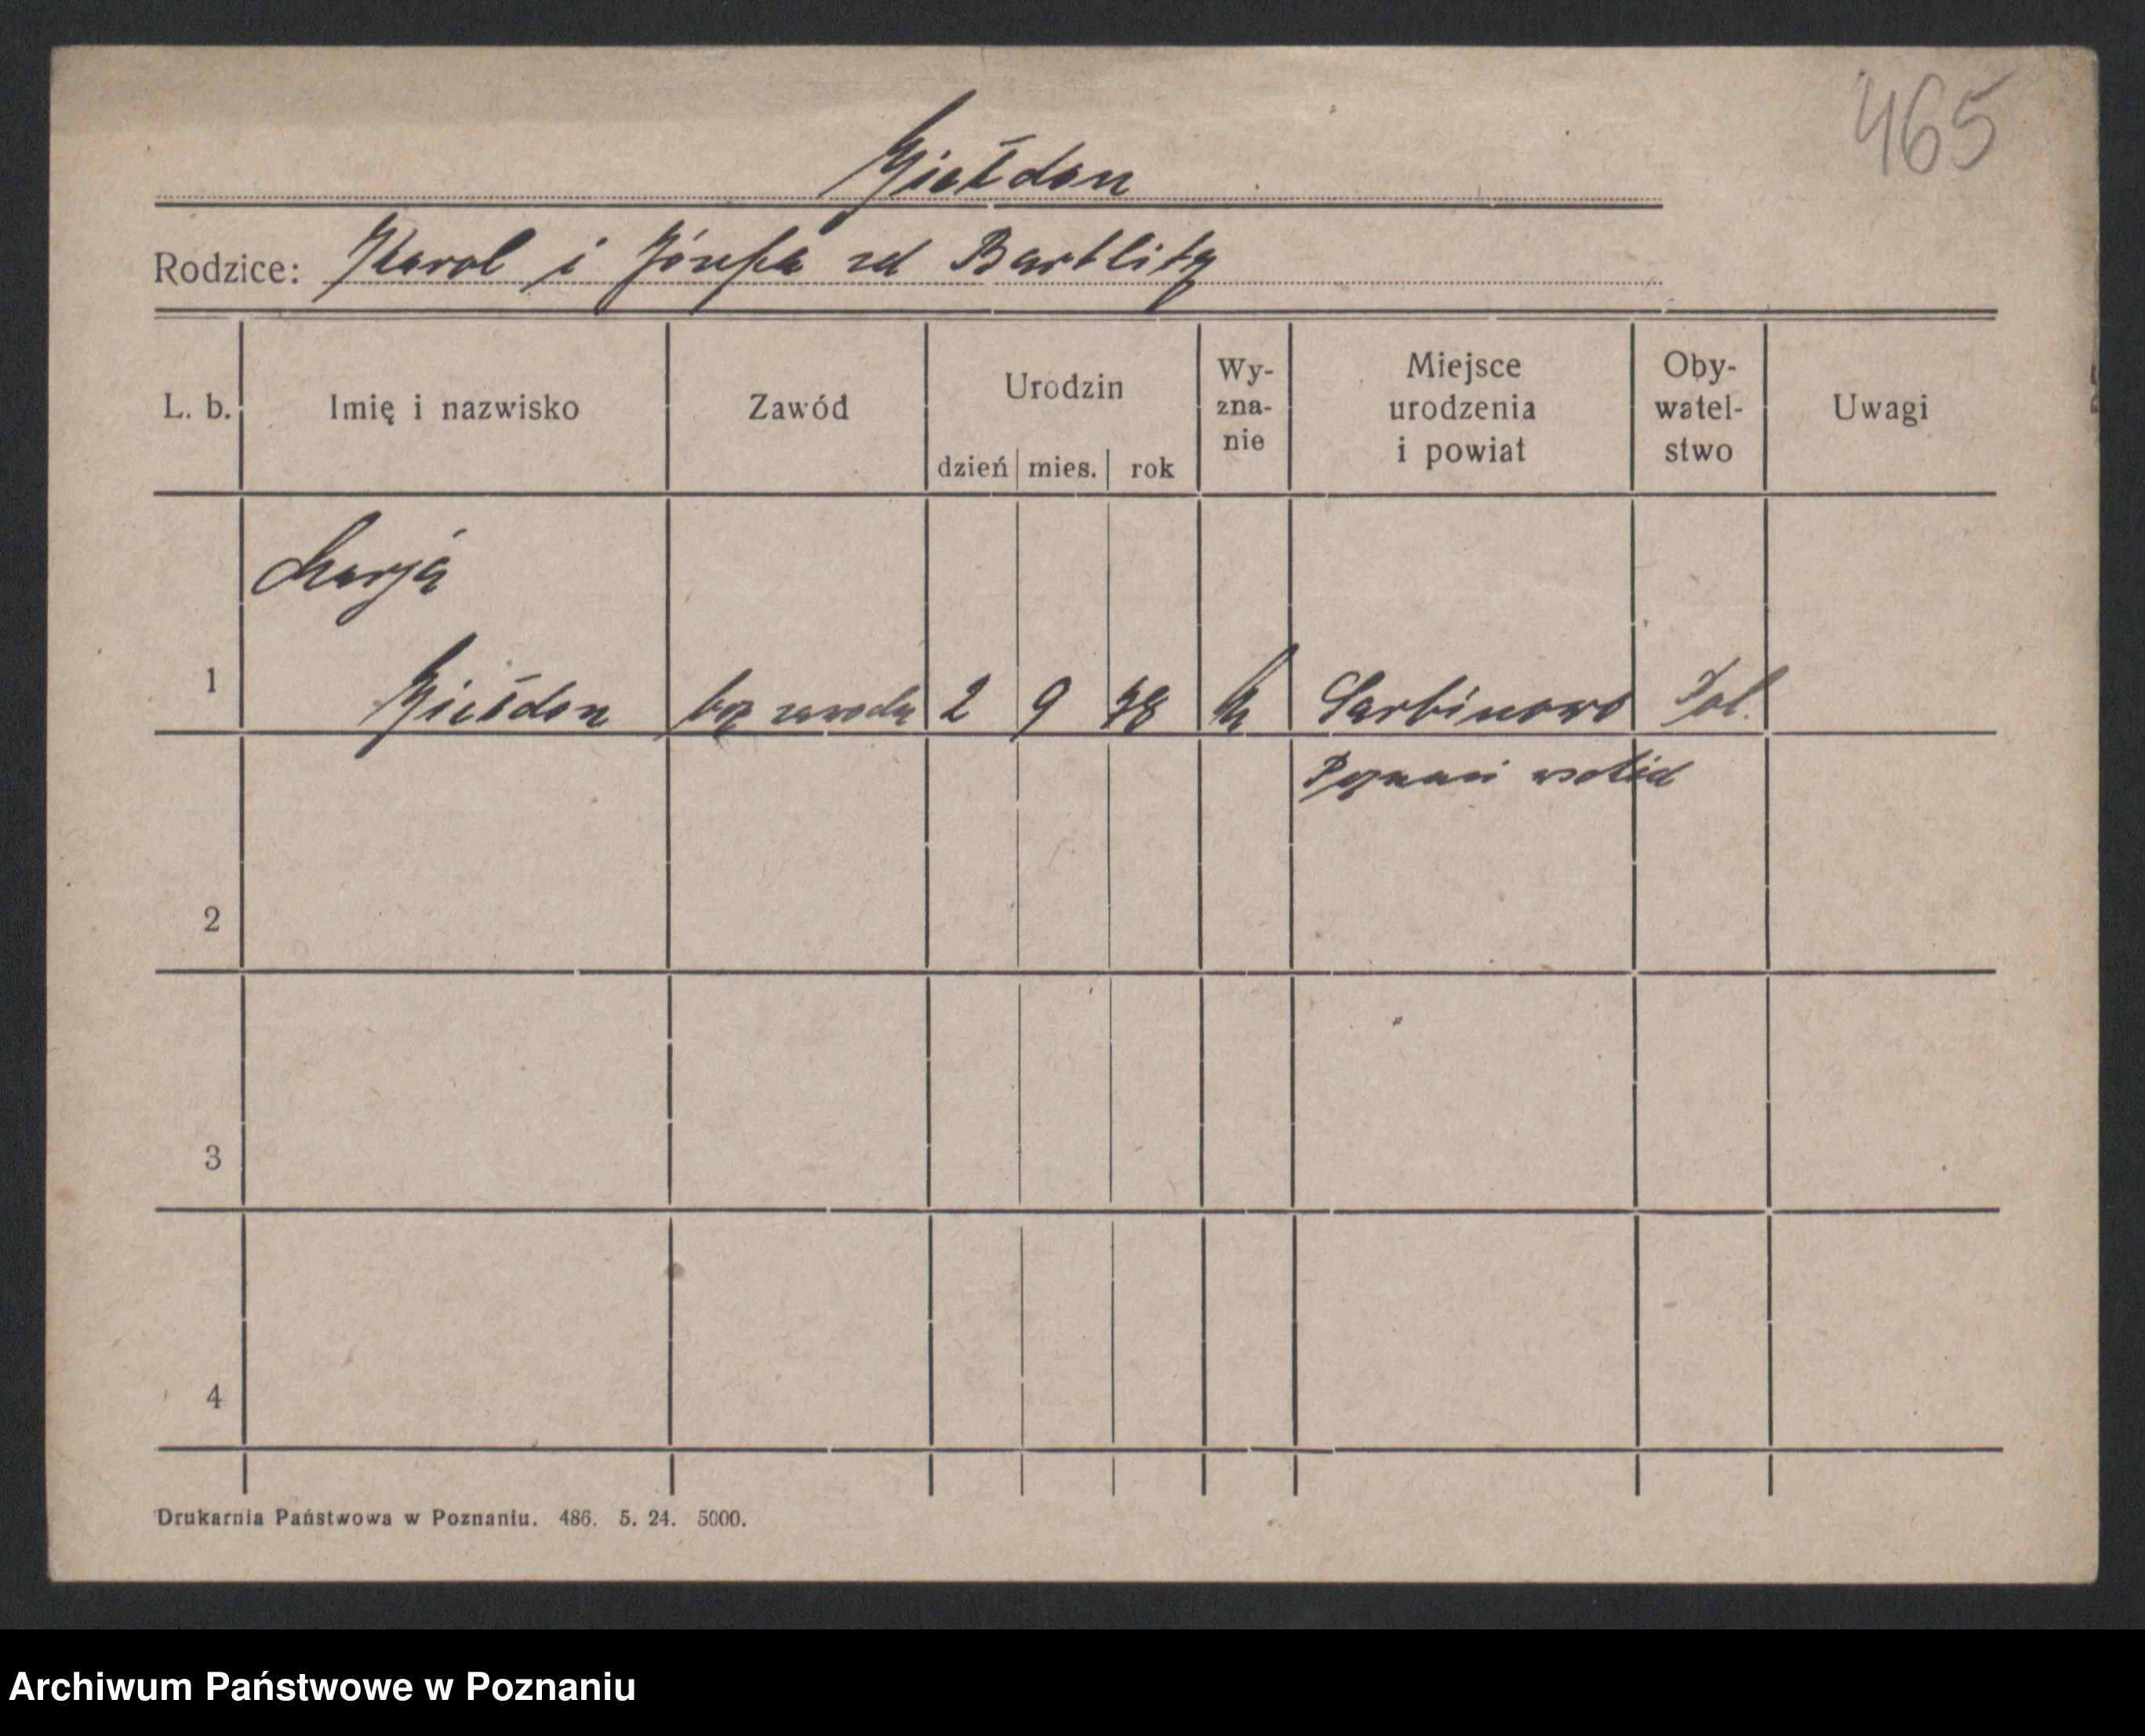 465
Giełdon
Rodzice: Karol i Józefa zd Bartlitz
L. b. Imię i nazwisko Zawód Urodzin dzień mies. rok Wy-zna-nie Miejsce urodzenia i powiat Oby-watel-stwo Uwagi
Marja
1 Giełdon bez zawodu 2 9 98 k Sarbinowo Pol.
Poznań wschód
2
3
4
Drukarnia Państwowa w Poznaniu. 486. 5. 24. 5000.
Archiwum Państwowe w Poznaniu